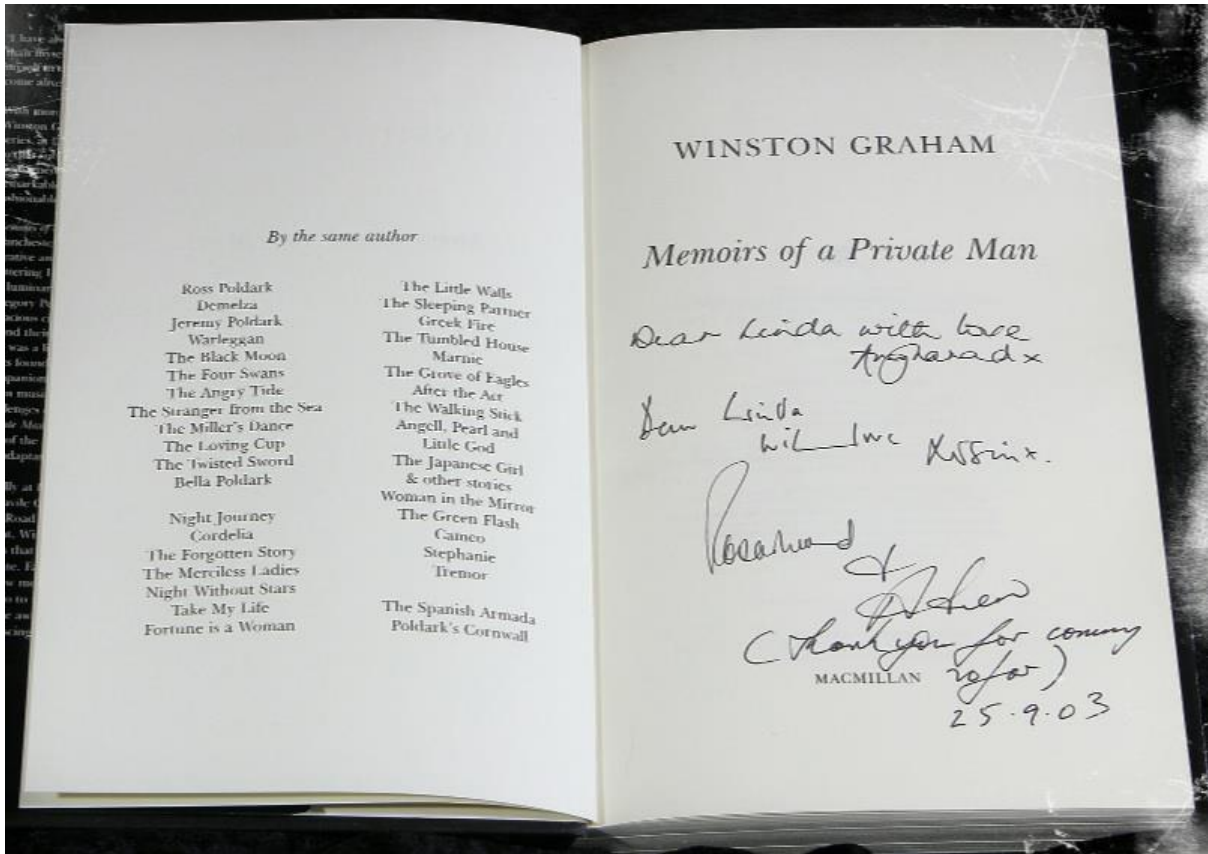 By the same author
Ross Poldark
Demelza
Jeremy Poldark
Warleggan
The Black Moon
The Four Swans
The Angry Tide
The Stranger from the Sea
The Miller's Dance
The Loving Cup
The Twisted Sword
Bella Poldark
Night Journey
Cordelia
The Forgotten Story
The Merciless Ladies
Night Without Stars
Take My Life
Fortune is a Woman
The Little Walls
The Sleeping Partner
Greek Fire
The Tumbled House
Marnie
The Grove of Eagles
After the Act
The Walking Stick
Angell, Pearl and
Little God
The Japanese Girl
& other stories
Woman in the Mirror
The Green Flash
Cameo
Stephanie
Tremor
The Spanish Armada
Poldark's Cornwall
WINSTON GRAHAM
Memoirs of a Private Man
Dear Linda with love
Angharad x
Dear Linda
with love
Rosamund
&
Andrew
(Thank you for coming
so far)
MACMILLAN
25.9.03